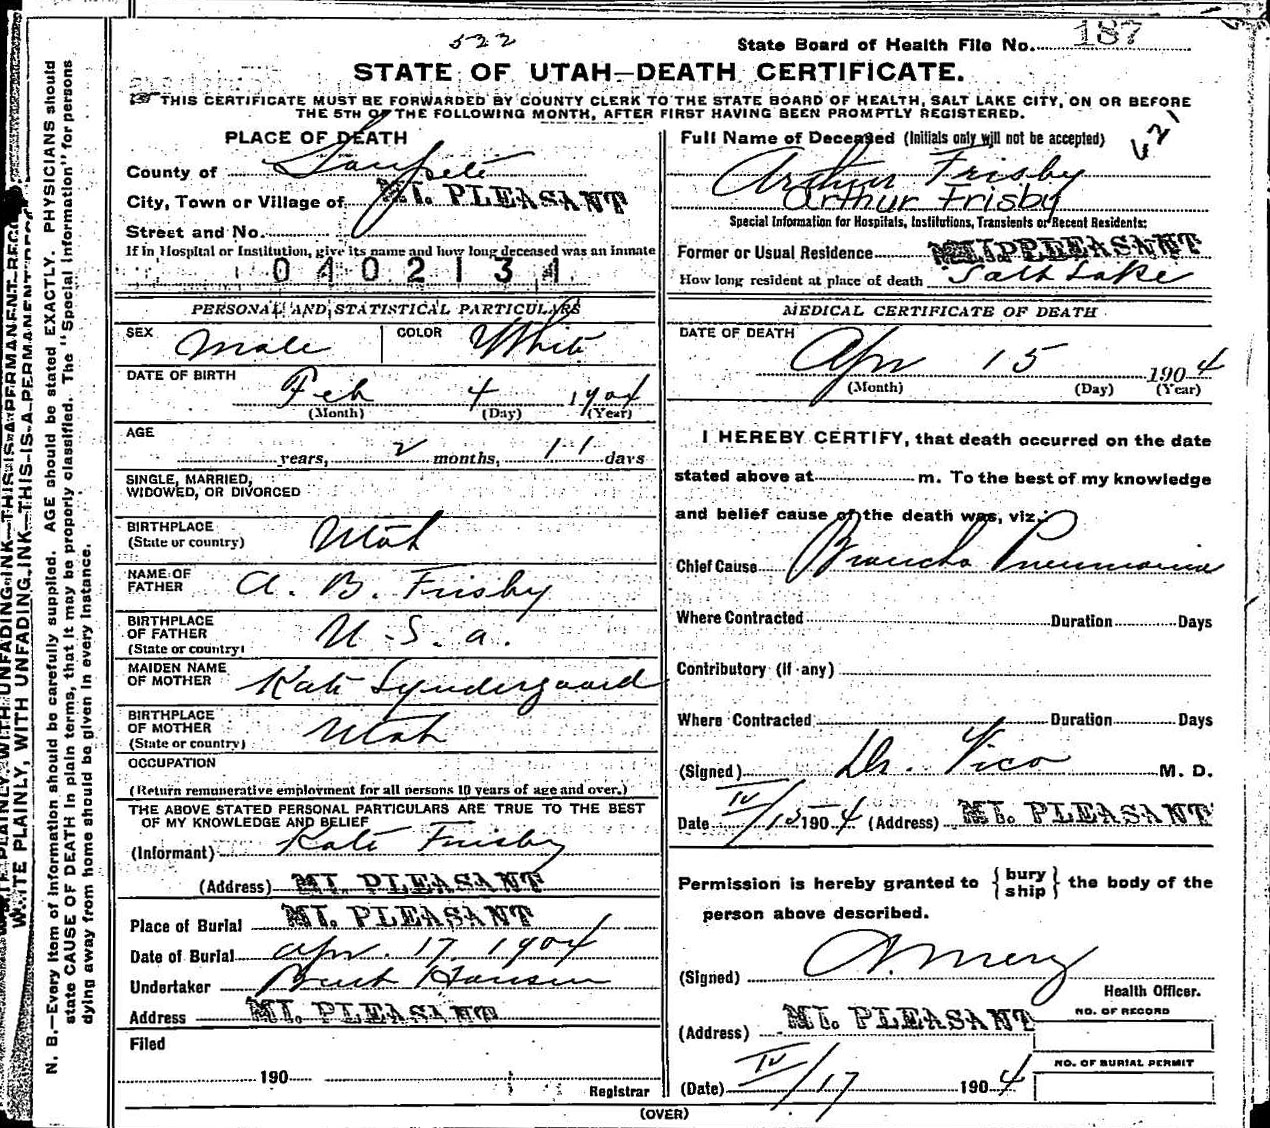 522
State Board of Health File No. 187
STATE OF UTAH—DEATH CERTIFICATE.
THIS CERTIFICATE MUST BE FORWARDED BY COUNTY CLERK TO THE STATE BOARD OF HEALTH, SALT LAKE CITY, ON OR BEFORE
THE 5TH OF THE FOLLOWING MONTH, AFTER FIRST HAVING BEEN PROMPTLY REGISTERED.
WRITE PLAINLY, WITH UNFADING INK—THIS IS A PERMANENT RECORD
N. B.—Every item of information should be carefully supplied. AGE should be stated EXACTLY. PHYSICIANS should
state CAUSE OF DEATH in plain terms, that it may be properly classified. The "Special Information" for persons
dying away from home should be given in every instance.
PLACE OF DEATH
County of Sanpete
City, Town or Village of MT. PLEASANT
Street and No.
If in Hospital or Institution, give its name and how long deceased was an inmate
0402131
PERSONAL AND STATISTICAL PARTICULARS
SEX Male COLOR White
DATE OF BIRTH
Feb 4 1904
(Month) (Day) (Year)
AGE
years, 2 months, 11 days
SINGLE, MARRIED,
WIDOWED, OR DIVORCED
BIRTHPLACE
(State or country) Utah
NAME OF
FATHER A. B. Frisby
BIRTHPLACE
OF FATHER
(State or country) U.S.a.
MAIDEN NAME
OF MOTHER Kate Syndergaard
BIRTHPLACE
OF MOTHER
(State or country) Utah
OCCUPATION
(Return remunerative employment for all persons 10 years of age and over.)
THE ABOVE STATED PERSONAL PARTICULARS ARE TRUE TO THE BEST
OF MY KNOWLEDGE AND BELIEF
(Informant) Kate Frisby
(Address) MT. PLEASANT
Place of Burial MT. PLEASANT
Date of Burial Apr. 17. 1904
Undertaker Hansen
Address MT. PLEASANT
Filed
190
Registrar
Full Name of Deceased (Initials only will not be accepted)
621
Arthur Frisby
Arthur Frisby
Special Information for Hospitals, Institutions, Transients or Recent Residents:
Former or Usual Residence MT. PLEASANT
How long resident at place of death Salt Lake
MEDICAL CERTIFICATE OF DEATH
DATE OF DEATH
Apr 15 1904
(Month) (Day) (Year)
I HEREBY CERTIFY, that death occurred on the date
stated above at m. To the best of my knowledge
and belief cause of the death was, viz.:
Chief Cause Broncho Pneumonia
Where Contracted Duration Days
Contributory (if any)
Where Contracted Duration Days
(Signed) Dr. Vico M. D.
Date IV/15 1904 (Address) MT. PLEASANT
Permission is hereby granted to {bury
ship} the body of the
person above described.
(Signed) A. Merz
Health Officer.
(Address) MT. PLEASANT
NO. OF RECORD
NO. OF BURIAL PERMIT
(Date) IV/17 1904
(OVER)